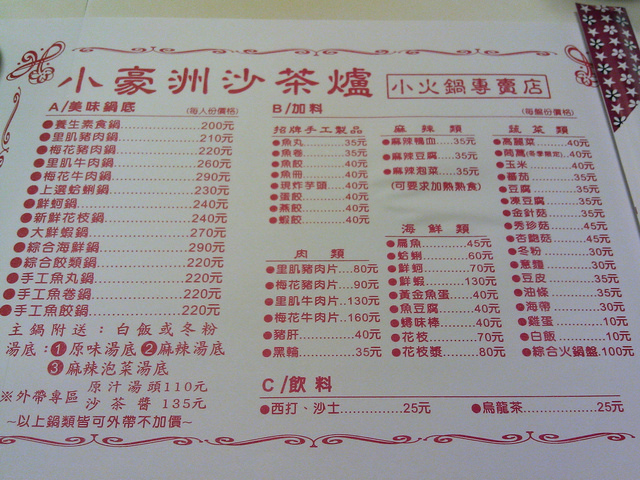 小豪洲沙茶爐 小火鍋專賣店
A/美味鍋底 (每人份價格)
●養生素食鍋..........200元
●里肌豬肉鍋..........210元
●梅花豬肉鍋..........220元
●里肌牛肉鍋..........260元
●梅花牛肉鍋..........290元
●上選蛤蜊鍋..........230元
●鮮蚵鍋..........240元
●新鮮花枝鍋..........240元
●大鮮蝦鍋..........270元
●綜合海鮮鍋..........290元
●綜合餃類鍋..........220元
●手工魚丸鍋..........220元
●手工魚卷鍋..........220元
●手工魚餃鍋..........220元
主鍋附送：白飯或冬粉
湯底：❶原味湯底❷麻辣湯底
❸麻辣泡菜湯底
※外帶專區 原汁湯頭110元
沙茶醬 135元
~以上鍋類皆可外帶不加價~
B/加料 (每盤份價格)
招牌手工製品
●魚丸..........35元
●魚卷..........35元
●魚餃..........40元
●魚冊..........40元
●現炸芋頭....40元
●蛋餃..........40元
●燕餃..........40元
●蝦餃..........40元
肉 類
●里肌豬肉片...80元
●梅花豬肉片...90元
●里肌牛肉片..130元
●梅花牛肉片..160元
●豬肝..........40元
●黑輪..........35元
麻 辣 類
●麻辣鴨血....35元
●麻辣豆腐....35元
●麻辣泡菜....35元
(可要求加熱熟食)
海 鮮 類
●扁魚..........45元
●蛤蜊..........60元
●鮮蚵..........70元
●鮮蝦..........130元
●黃金魚蛋....40元
●魚豆腐.......40元
●蟳味棒.......40元
●花枝..........70元
●花枝漿.......80元
蔬 菜 類
●高麗菜.......40元
●茼蒿(冬季限定)..40元
●玉米..........40元
●蕃茄..........35元
●豆腐..........35元
●凍豆腐.......35元
●金針菇.......35元
●秀珍菇.......45元
●杏鮑菇.......45元
●冬粉..........30元
●意麵..........30元
●豆皮..........35元
●油條..........35元
●海帶..........30元
●雞蛋..........10元
●白飯..........10元
●綜合火鍋盤.100元
C/飲料
●西打、沙士..........25元
●烏龍茶..........25元